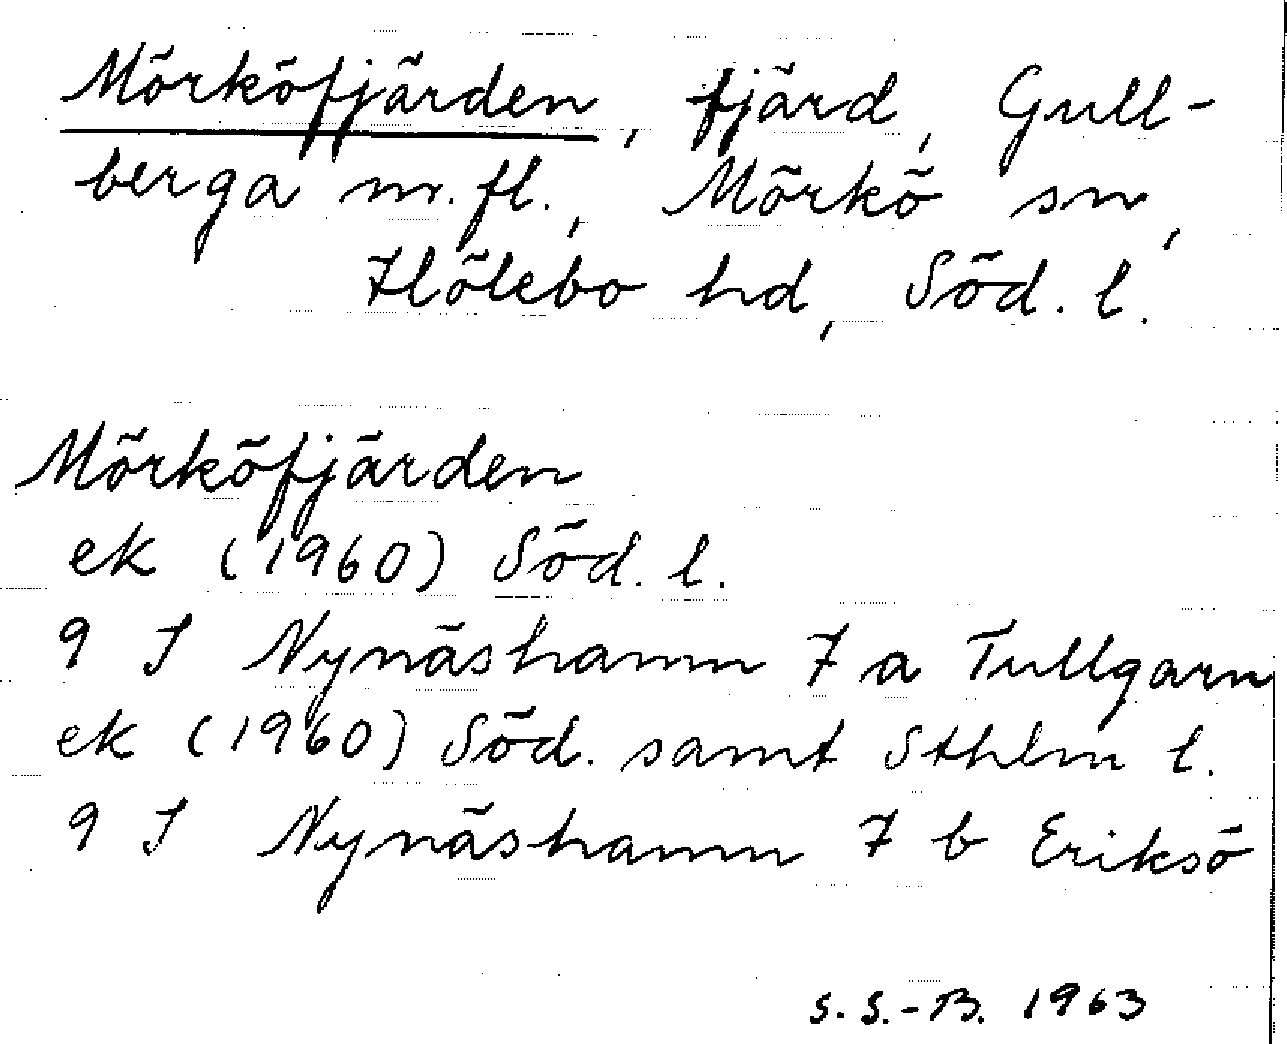 Mörköfjärden, fjärd, Gull-
berga m.fl., Mörkö sn,
Hölebo hd, Söd. l.
Mörköfjärden
ek (1960) Söd. l.
9 I Nynäshamn 7 a Tullgarn
ek (1960) Söd. samt Sthlm l.
9 I Nynäshamn 7 b Eriksö
S. S.-B. 1963